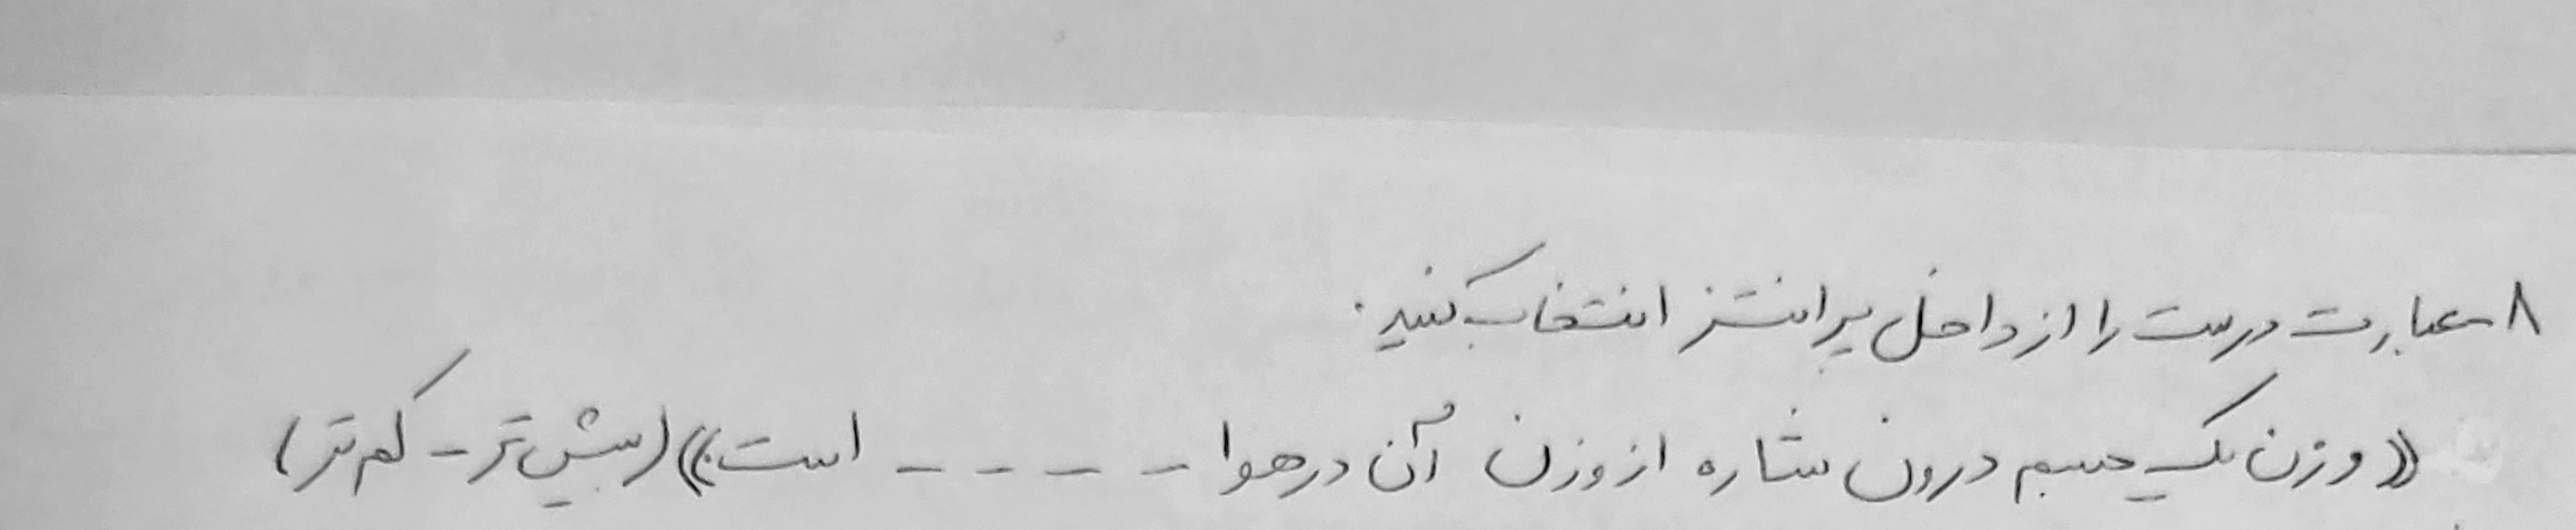 ۸- عبارت درست را از داخل پرانتز انتخاب کنید.
((وزن یک جسم درون شاره از وزن آن در هوا ---- است.)) (بیش تر - کم تر)